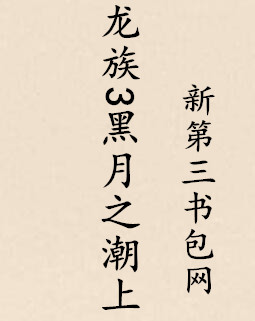 龙族3黑月之潮上
新第三书包网